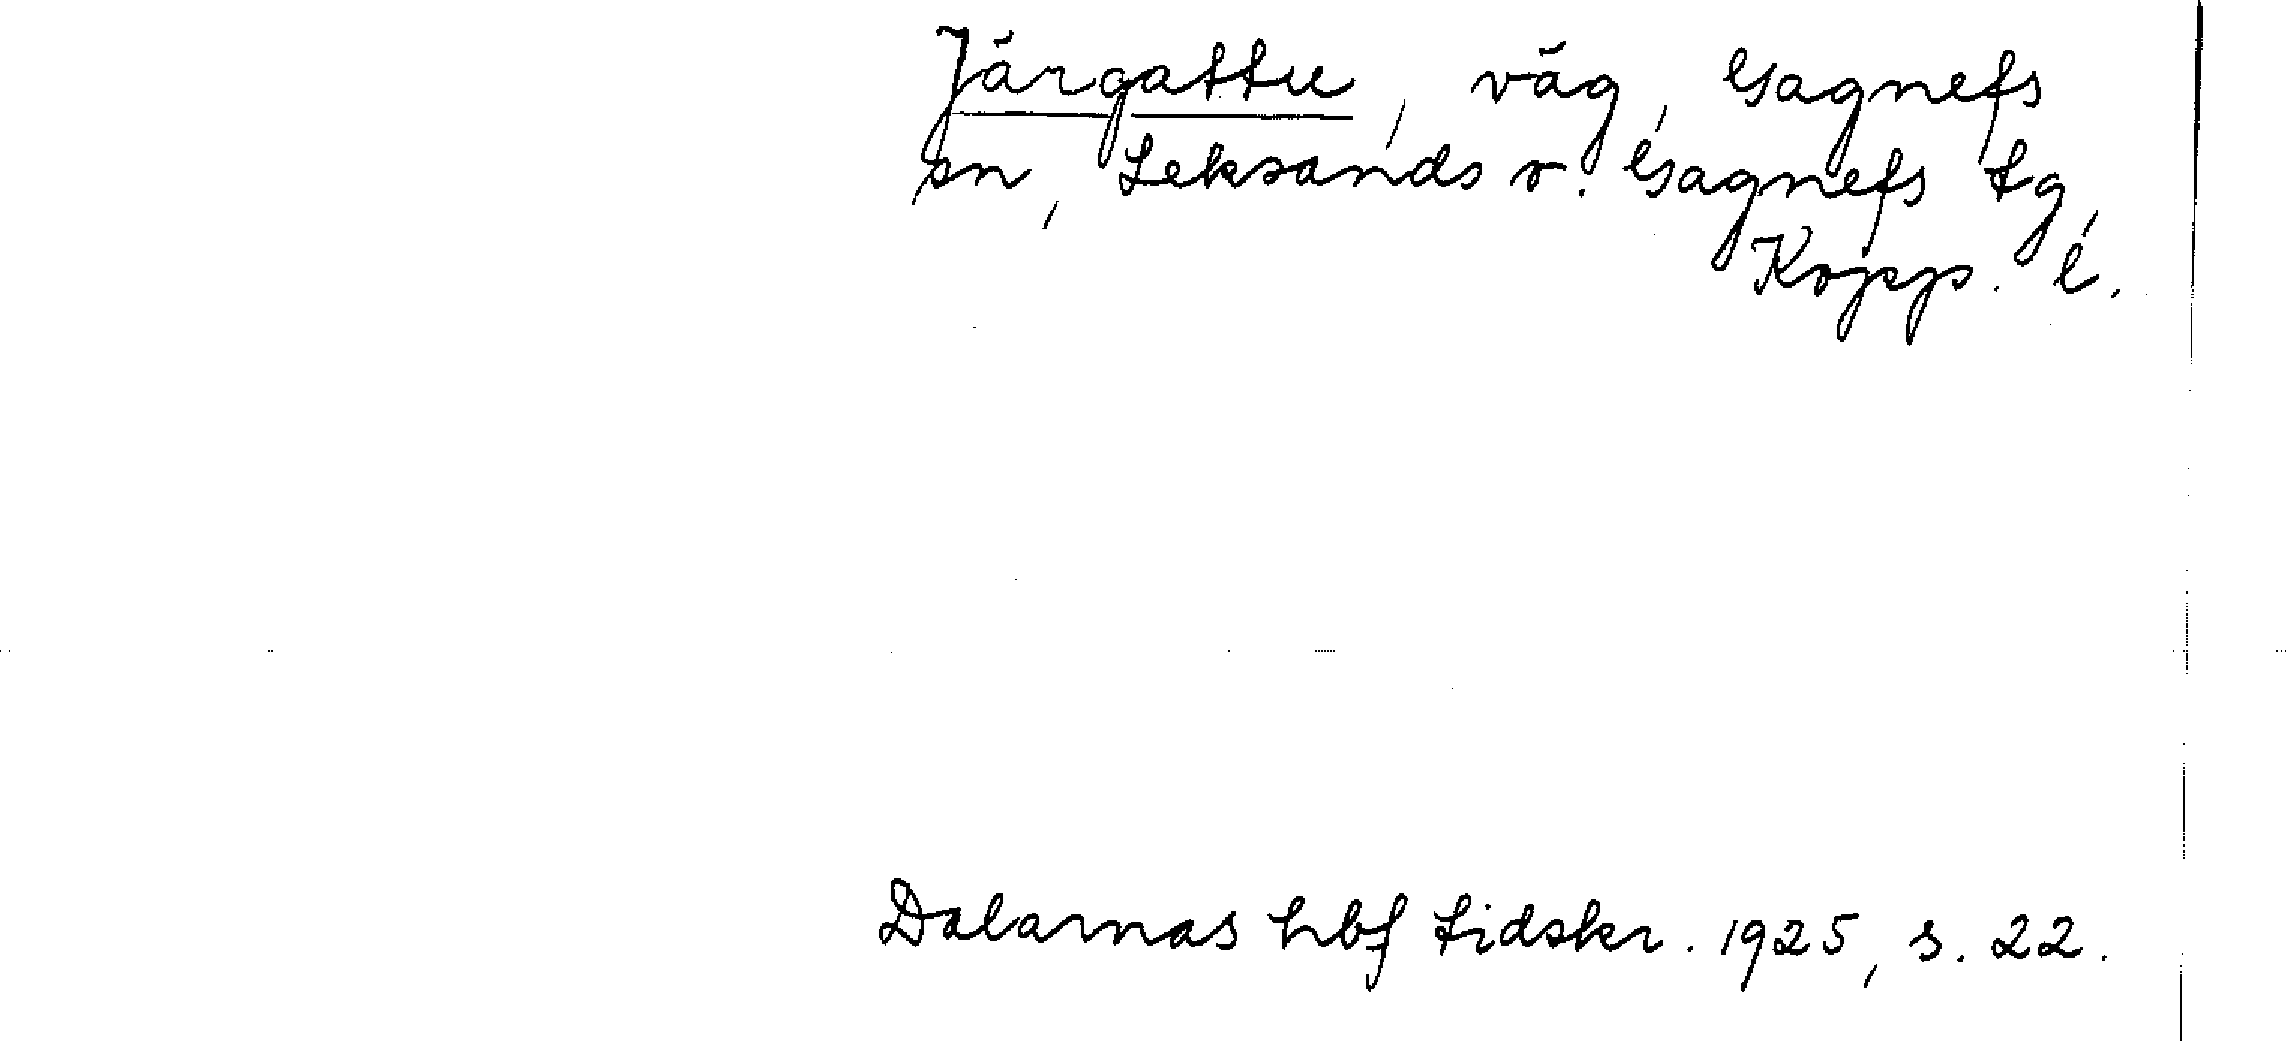 Järgattu, väg, Gagnefs
sn, Leksands o. Gagnefs tg,
Kopp. l.
Dalarnas hbf tidskr. 1925, s. 22.